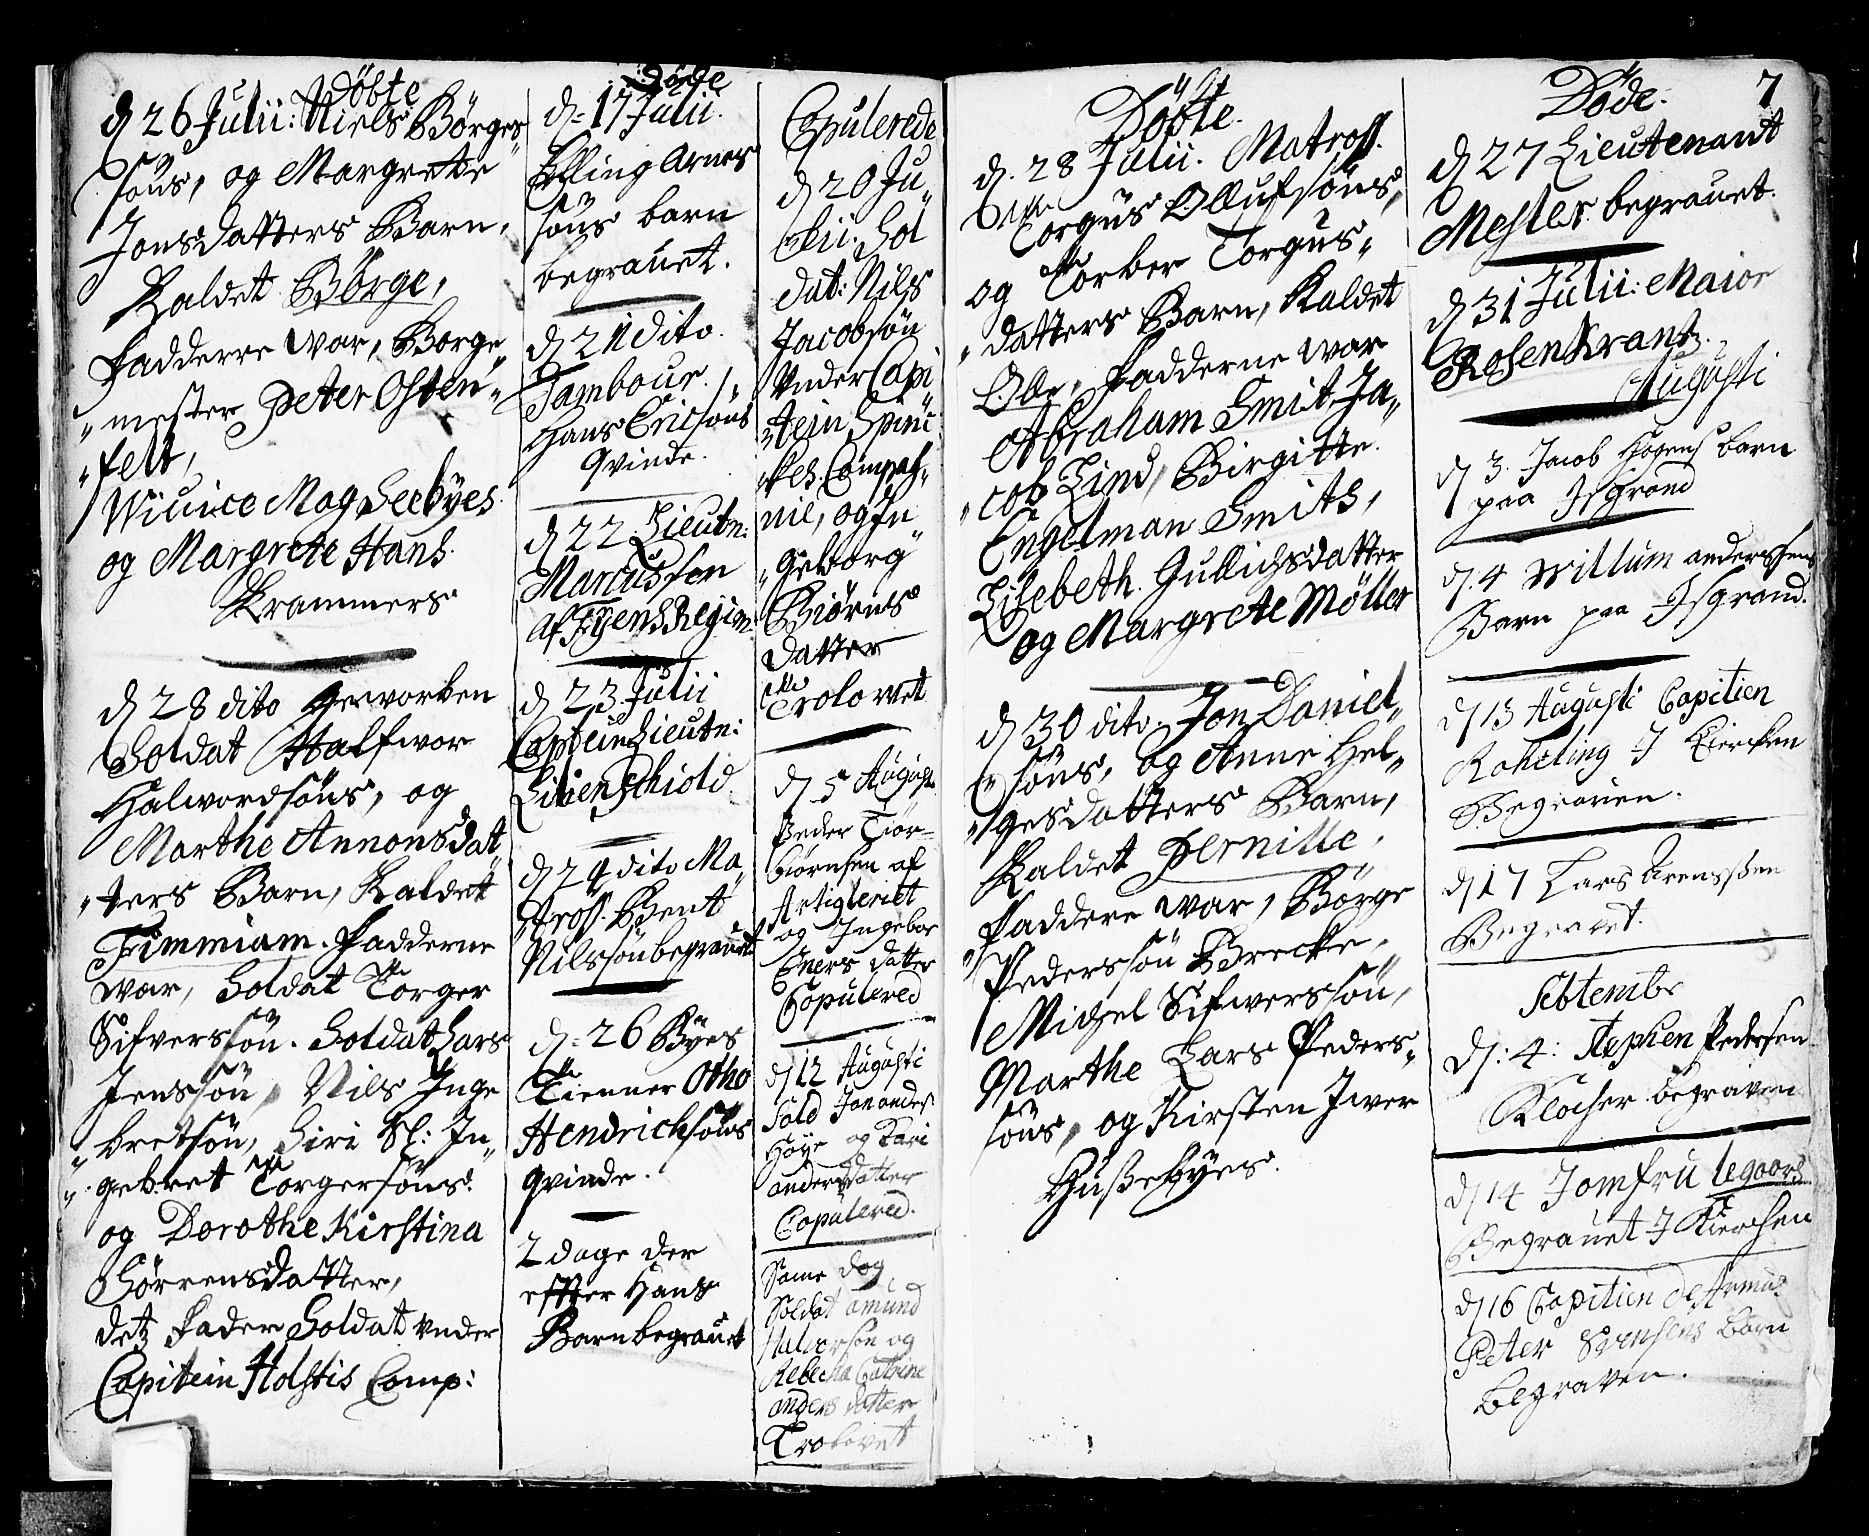 Döbte
d 26 Julii: Niels Börges„
söns, og Margrette
Jonsdatters Barn,
Kaldet Börge,
Fadderne war, Borge„
„mester Peter Osten„
„felt,
Wiuice Mag Seebyes
og Margrete Hans
Krammers
d 28 dito Geworben
Soldat Halfwor
Halwordsöns, og
Marthe Annonsdat„
„ters Barn, Kaldet
Fimmiam. Fadderne
war, Soldat Torger
Sifverssön. Soldat Lars
Jenssön, Nils Inge„
„bretsön, Siri Sl: In„
„gebret Torgersöns.
og Dorothe Kirstina
Sörrensdatter,
detz Fader Soldat under
Capitein Holstis Comp:
Döde
d= 17 Julii.
Elling Arnes
söns barn
begrauet.
d 21 dito.
Tambour.
Hans Ericsöns
Qvinde.
d 22 Lieutn:
Marcussen
af Fyens Regim:
d 23 Julii
Capteinlieutn:
Lilienschiold.
d 24 dito Ma„
„tross. Bent
Nilssön begrauet
d= 26 Byes
Tienner Otho
Hendrichsöns
qvinde.
2 dage der
effter Hans
Barn begrauet
Copulerede
d 20 Ju„
„lii: Sol
dat: Nils
Jacobsön
Under Capi
„tein Spinc
„kes Compag„
nie, og In„
„geborg
Biörns
datter
Trolowet
d 5 Augusti
Peder Tior=
biörnsen af
Artigleriet
og Ingebor
Eners datter
Copulered
d 12 Augusti
Sold Jon anders
Höye og Kari
anders datter
Copulered.
Same dag
Soldat Amund
Halvorsön og
Rebecka Catrine
anders datter
Trolovet
Döbte.
d. 28 Julii. Matross.
Torgus Ollufsöns,
og Torber Torgus„
„datters Barn, Kaldet
Ole, Fadderne war
Abraham Smit, Ja„
„cob Lind, Birgitte.
Engelman Smits,
Lisebeth. Gullichsdatter
og Margrete Möller
d 30 dito. Jon Daniel„
„söns, og Anne Hel„
„gesdatters Barn,
Kaldet Pernille,
Faddere war, Börge
Pederssön Brecke,
Michel Sifverssön,
Marthe Lars Peders„
söns, og Kirsten Iwer
Hussebyes.
7
Döde:
d 27 Lieutenant
Mester begrauet.
d 31 Julii: Maior
Rosenkrantz.
Augusti
d 3. Jacob Hogens barn
paa Isgrand
d. 4 Willum anderssens
Barn paa Isgrand.
d 13 Augusti Capitien
Rohcling I Kiercken
Begraven.
d 17 Lars Arenssen
Begravet.
Sebtembr
d: 4: Stephen Pedersen
Klocker begraven
d 14 Jomfru legaars
Begrauet I Kierchen
d 16 Capitien de Armus
Peter Svensens Barn
Begraven.